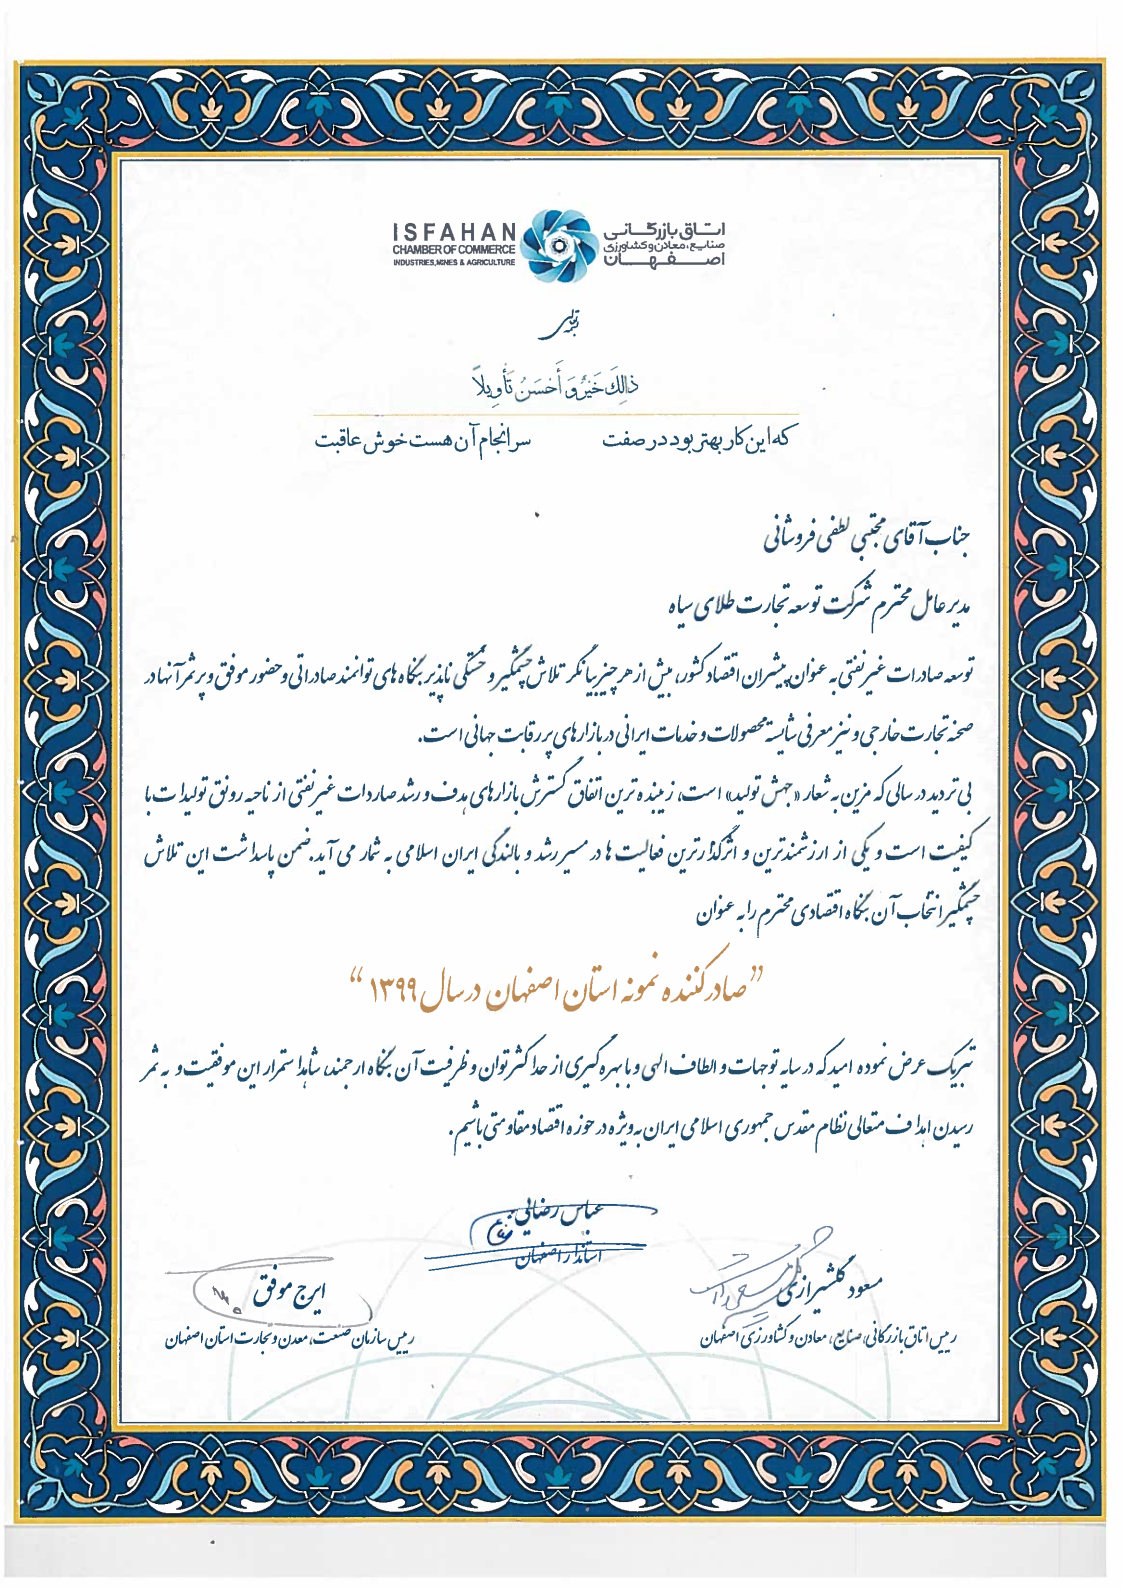 ISFAHAN
CHAMBER OF COMMERCE
INDUSTRIES, MINES & AGRICULTURE
اتاق بازرگانی
صنایع، معادن و کشاورزی
اصفهان
بسمه تعالی
ذالِكَ خَيْرٌ وَ أَحْسَنُ تَأْوِيلاً
که این کار بهتر بود در صفت سرانجام آن هست خوش عاقبت
جناب آقای مجتبی لطفی فروشانی
مدیر عامل محترم شرکت توسعه تجارت طلای سیاه
توسعه صادرات غیرنفتی به عنوان پیشران اقتصاد کشور، بیش از هر چیز بیانگر تلاش چشمگیر و خستگی ناپذیر بنگاه های توانمند صادراتی و حضور موفق و پرثمر آنها در
صحنه تجارت خارجی و نیز معرفی شایسته محصولات و خدمات ایرانی در بازارهای پر رقابت جهانی است.
بی تردید در سالی که مزین به شعار «جهش تولید» است، زیبنده ترین اتفاق گسترش بازارهای هدف و رشد صاردات غیرنفتی از ناحیه رونق تولیدات با
کیفیت است و یکی از ارزشمندترین و اثرگذارترین فعالیت ها در مسیر رشد و بالندگی ایران اسلامی به شمار می آید. ضمن پاسداشت این تلاش
چشمگیر انتخاب آن بنگاه اقتصادی محترم را به عنوان
”صادرکننده نمونه استان اصفهان در سال ۱۳۹۹“
تبریک عرض نموده امید که در سایه توجهات و الطاف الهی و با بهره گیری از حداکثر توان و ظرفیت آن بنگاه ارجمند، شاهد استمرار این موفقیت و به ثمر
رسیدن اهداف متعالی نظام مقدس جمهوری اسلامی ایران به ویژه در حوزه اقتصاد مقاومتی باشیم.
عباس رضایی
استاندار اصفهان
مسعود گلشیرازی
رییس اتاق بازرگانی، صنایع، معادن و کشاورزی اصفهان
ایرج موفق
رییس سازمان صنعت، معدن و تجارت استان اصفهان